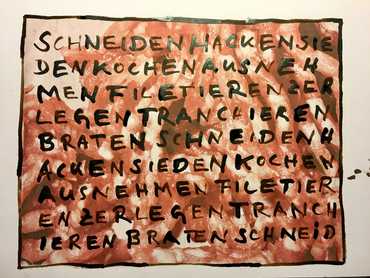 SCHNEIDENHACKENSIE
DENKOCHENAUSNEH
MENFILETIERENZER
LEGENTRANCHIEREN
BRATENSCHNEIDENH
ACKENSIEDENKOCHEN
AUSNEHMENFILETIER
ENZERLEGENTRANCH
IERENBRATENSCHNEID